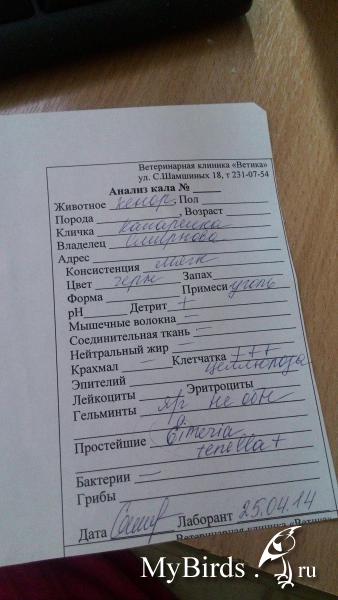 Ветеринарная клиника «Ветика»
ул. С.Шамшиных 18, т 231-07-54
Анализ кала №
Животное кенар, Пол
Порода канарейка, Возраст
Кличка
Владелец Смирнова
Адрес
Консистенция мягк
Цвет черн Запах
Форма Примеси уголь
pH Детрит +
Мышечные волокна —
Соединительная ткань —
Нейтральный жир —
Крахмал — Клетчатка +++
Эпителий целлюлозы
Лейкоциты Эритроциты
Гельминты я/г не обн
Простейшие Eimeria
tenella +
Бактерии —
Грибы
Дата Лаборант 25.04.14
Ветеринарная клиника «Ветика»
MyBirds.ru